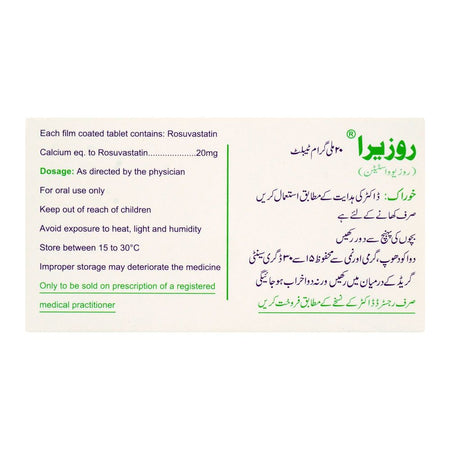 Each film coated tablet contains: Rosuvastatin
Calcium eq. to Rosuvastatin...................20mg
Dosage: As directed by the physician
For oral use only
Keep out of reach of children
Avoid exposure to heat, light and humidity
Store between 15 to 30°C
Improper storage may deteriorate the medicine
Only to be sold on prescription of a registered
medical practitioner
روزیرا® ۲۰ ملی گرام ٹیبلٹ
(روزیوواسٹیٹن)
خوراک: ڈاکٹر کی ہدایت کے مطابق استعمال کریں
صرف کھانے کے لئے ہے
بچوں کی پہنچ سے دور رکھیں
دوا کو دھوپ، گرمی اور نمی سے محفوظ ۱۵ سے ۳۰ ڈگری سینٹی
گریڈ کے درمیان میں رکھیں ورنہ دوا خراب ہو جائیگی
صرف رجسٹرڈ ڈاکٹر کے نسخے کے مطابق فروخت کریں